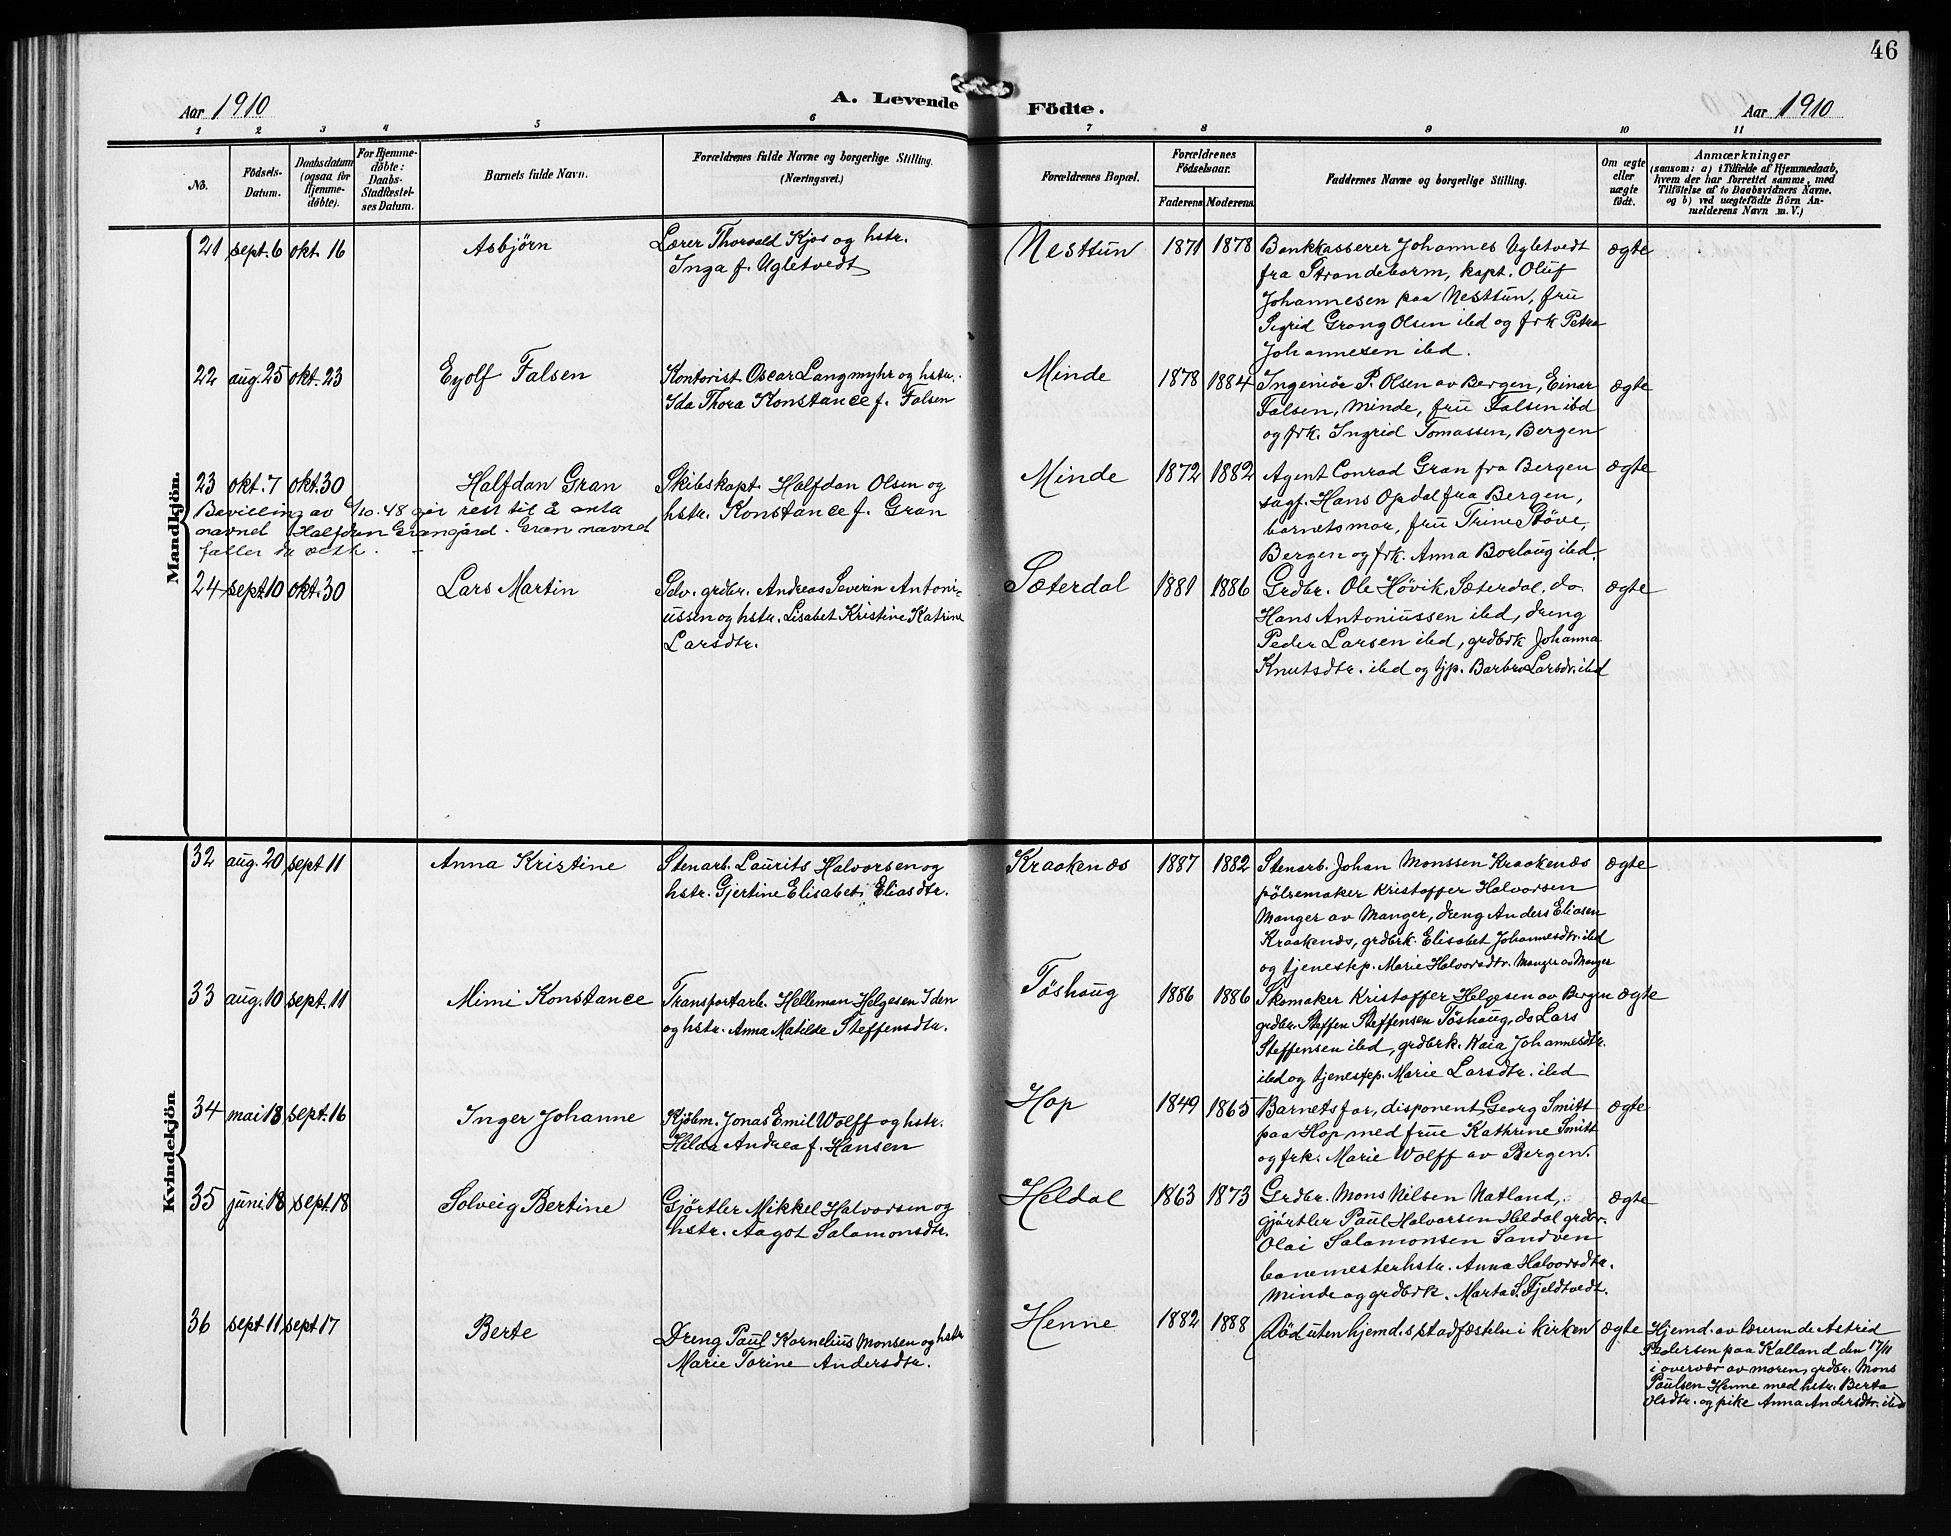 46
Aar 1910
A. Levende Födte.
Aar 1910
1 2 3 4 5 6 7 8 9 10 11
No.
Födsels-
Datum.
Daabsdatum
(ogsaa for
Hjemme-
döbte).
For Hjemme-
döbte:
Daabs-
Stadfæstel-
ses Datum.
Barnets fulde Navn.
Forældrenes fulde Navne og borgerlige Stilling.
(Næringsvei.)
Forældrenes Bopæl.
Forældrenes
Födselsaar.
Faderens Moderens
Faddernes Navne og borgerlige Stilling.
Om ægte
eller
uægte
födt.
Anmærkninger
(saasom: a) i Tilfælde af Hjemmedaab,
hvem der har forrettet samme, med
Tilföielse af to Daabsvidners Navne.
og b) ved uægtefödte Börn An-
melderens Navn m. V.)
Mandkjön.
21 sept. 6 okt. 16 Asbjørn
Lærer Thorvald Kjos og hstr.
Inga f. Ugletvedt
Nesttun 1871 1878
Bankkasserer Johannes Ugletvedt
fra Strandebarm, kapt. Oluf
Johannesen paa Nesttun, fru
Sigrid Grang Olsen ibd og frk Petra
Johannesen ibd.
ægte
22 aug. 25 okt. 23 Eyolf Falsen
Kontorist Oscar Langmyhr og hstr.
Ida Thora Konstance f. Falsen
Minde 1878 1884
Ingeniør P. Olsen av Bergen, Einar
Falsen, Minde, fru Falsen ibd
og frk. Ingrid Tomassen, Bergen
ægte
23 okt. 7 okt. 30 Halfdan Gran
Skibskapt. Halfdan Olsen og
hstr. Konstance f. Gran
Minde 1872 1882
Agent Conrad Gran fra Bergen
sagf. Hans Opdal fra Bergen,
barnets mor, fru Trine Støve,
Bergen og frk. Anna Borlaug ibd.
ægte
Bevilling av /10.48 gir rett til å anta
navnet Halfdan Grangård. Gran navnet
faller da vekk.
24 sept. 10 okt. 30 Lars Martin
Selv. grdbr. Andreas Severin Antoni-
ussen og hstr. Lisabet Kristine Katrine
Larsdtr.
Sæterdal 1881 1886
Grdbr. Ole Høvik, Sæterdal, do
Hans Antoniussen ibd, dreng
Peder Larsen ibd, grdbrk Johanna
Knutsdtr. ibd og tjp. Barbro Larsdr. ibd
ægte
Kvindekjön
32 aug. 20 sept 11 Anna Kristine
Stenarb. Laurits Halvorsen og
hstr. Gjertine Elisabet Eliasdtr.
Kraakenæs 1887 1882
Stenarb. Johan Monssen Kraakenæs
pölsemaker Kristoffer Halvorsen
Manger av Manger, dreng Anders Eliasen
Kraakenæs, grdbrk. Elisabet Johannesdtr. ibd
og tjenestep. Marie Halvorsdtr. Manger av Manger
ægte
33 aug. 10 sept. 11 Mimi Konstance
Transportarb. Helleman Helgesen Iden
og hstr. Anna Matilde Steffensdtr.
Töshaug 1886 1886
Skomaker Kristoffer Helgesen av Bergen
grdbr. Steffen Steffensen Töshaug, do Lars
Steffensen ibd, grdbrk. Kaia Johannesdtr.
ibd og tjenestep. Marie Larsdtr. ibd
ægte
34 mai 18 sept. 16 Inger Johanne
Kjöbm. Jonas Emil Wolff og hstr.
Hilda Andrea f. Hansen
Hop 1849 1865
Barnets far, disponent Georg Smitt
paa Hop med frue Kathrine Smitt
og frk. Marie Wolff av Bergen.
ægte
35 juni 18 sept. 18 Solveig Bertine
Gjørtler Mikkel Halvorsen og
hstr. Aagot Salamonsdtr.
Heldal 1863 1873
Grdbr. Mons Nilsen Natland,
gjørtler Paul Halvorsen Heldal grdbr.
Olai Salamonsen Sandven
banemesterhstr. Anna Halvorsdtr.
Minde og grdbrk. Marta S. Fjeldtvedt.
ægte
36 sept 11 sept 17 Berte
Dreng Paul Kornelius Monsen og hstr
Marie Torine Andersdtr.
Henne 1882 1888
Död uten hjemd.s stadfæstelse i kirken
ægte
Hjemd. av lærerinde Astrid
Pedersen paa Kalland den 17/11
i overvær av moren, grdbr. Mons
Paulsen Henne med hstr. Berta
Olsdtr. og pike Anna Andersdtr. ibd